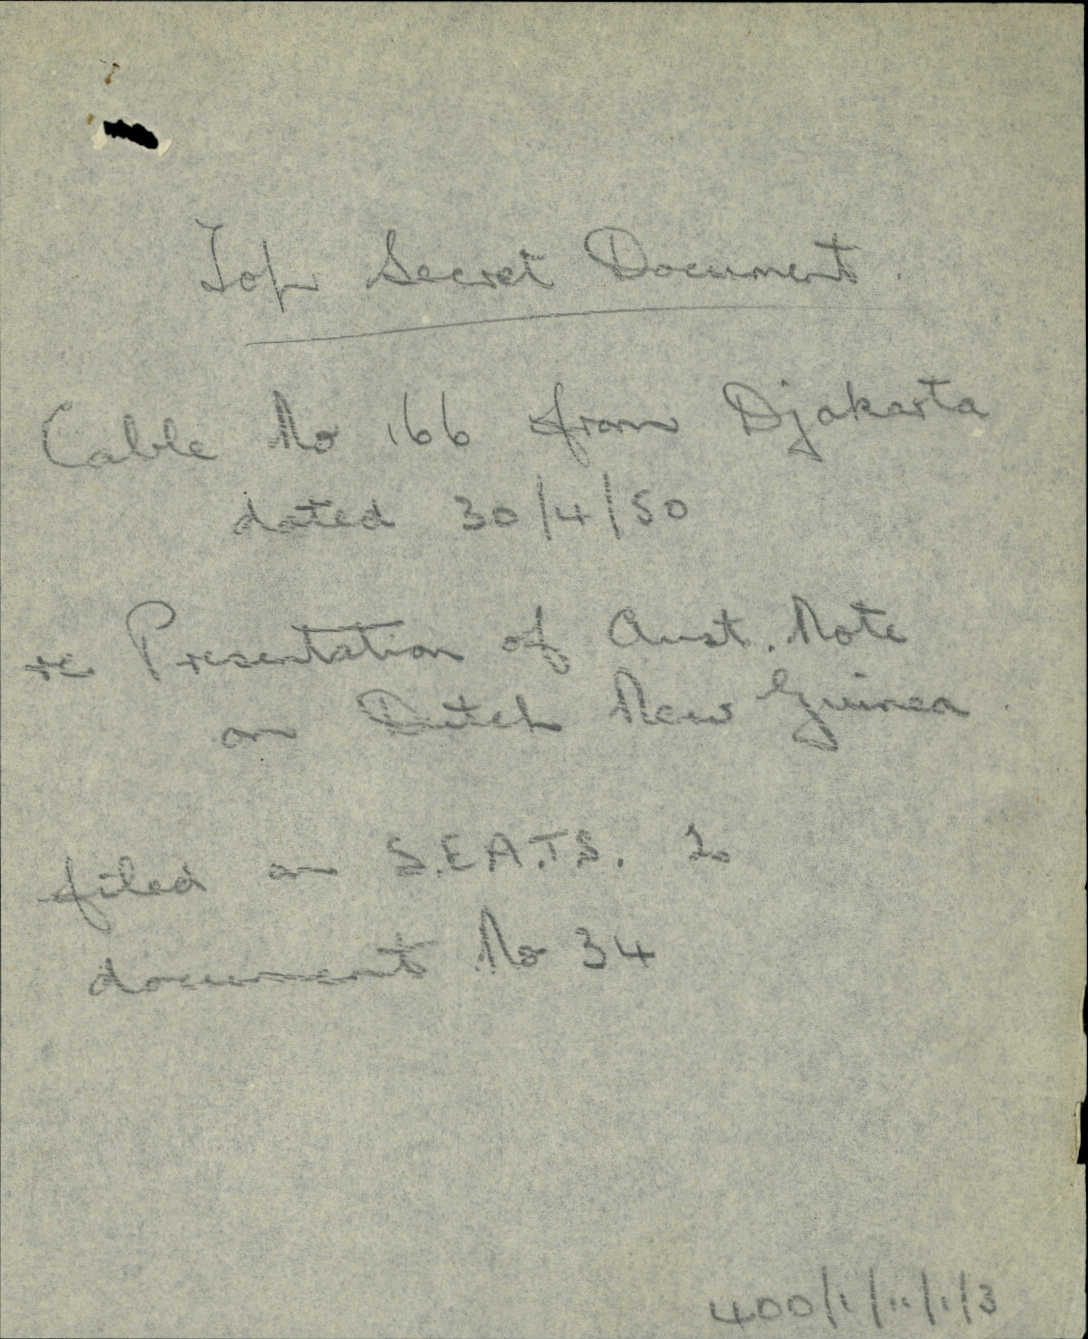 Top Secret Document.
Cable No 166 from Djakarta
dated 30/4/50
re Presentation of Aust. Note
on Dutch New Guinea
filed on S.E.A.T.S. 2
document No 34
400/1/11/1/3